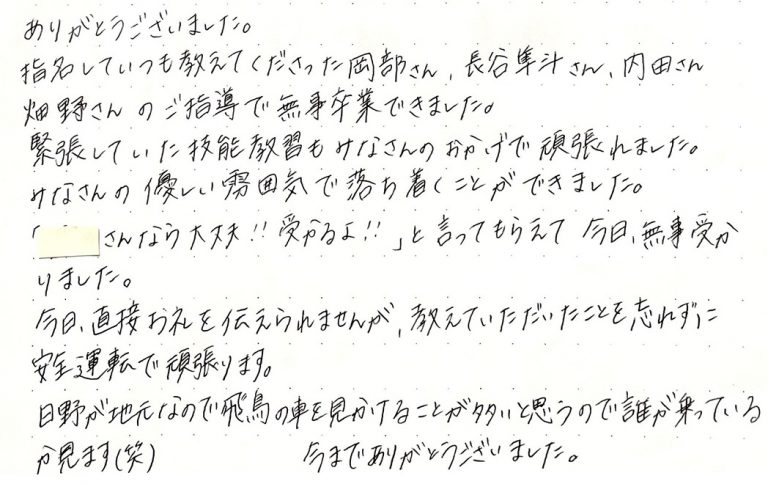 ありがとうございました。
指名していつも教えてくださった岡部さん、長谷隼斗さん、内田さん
畑野さんのご指導で無事卒業できました。
緊張していた技能教習もみなさんのおかげで頑張れました。
みなさんの優しい雰囲気で落ち着くことができました。
「 さんなら大丈夫!!受かるよ!!」と言ってもらえて今日、無事受か
りました。
今日、直接お礼を伝えられませんが、教えていただいたことを忘れずに
安全運転で頑張ります。
日野が地元なので飛鳥の車を見かけることが多いと思うので誰が乗っている
か見ます(笑) 今までありがとうございました。